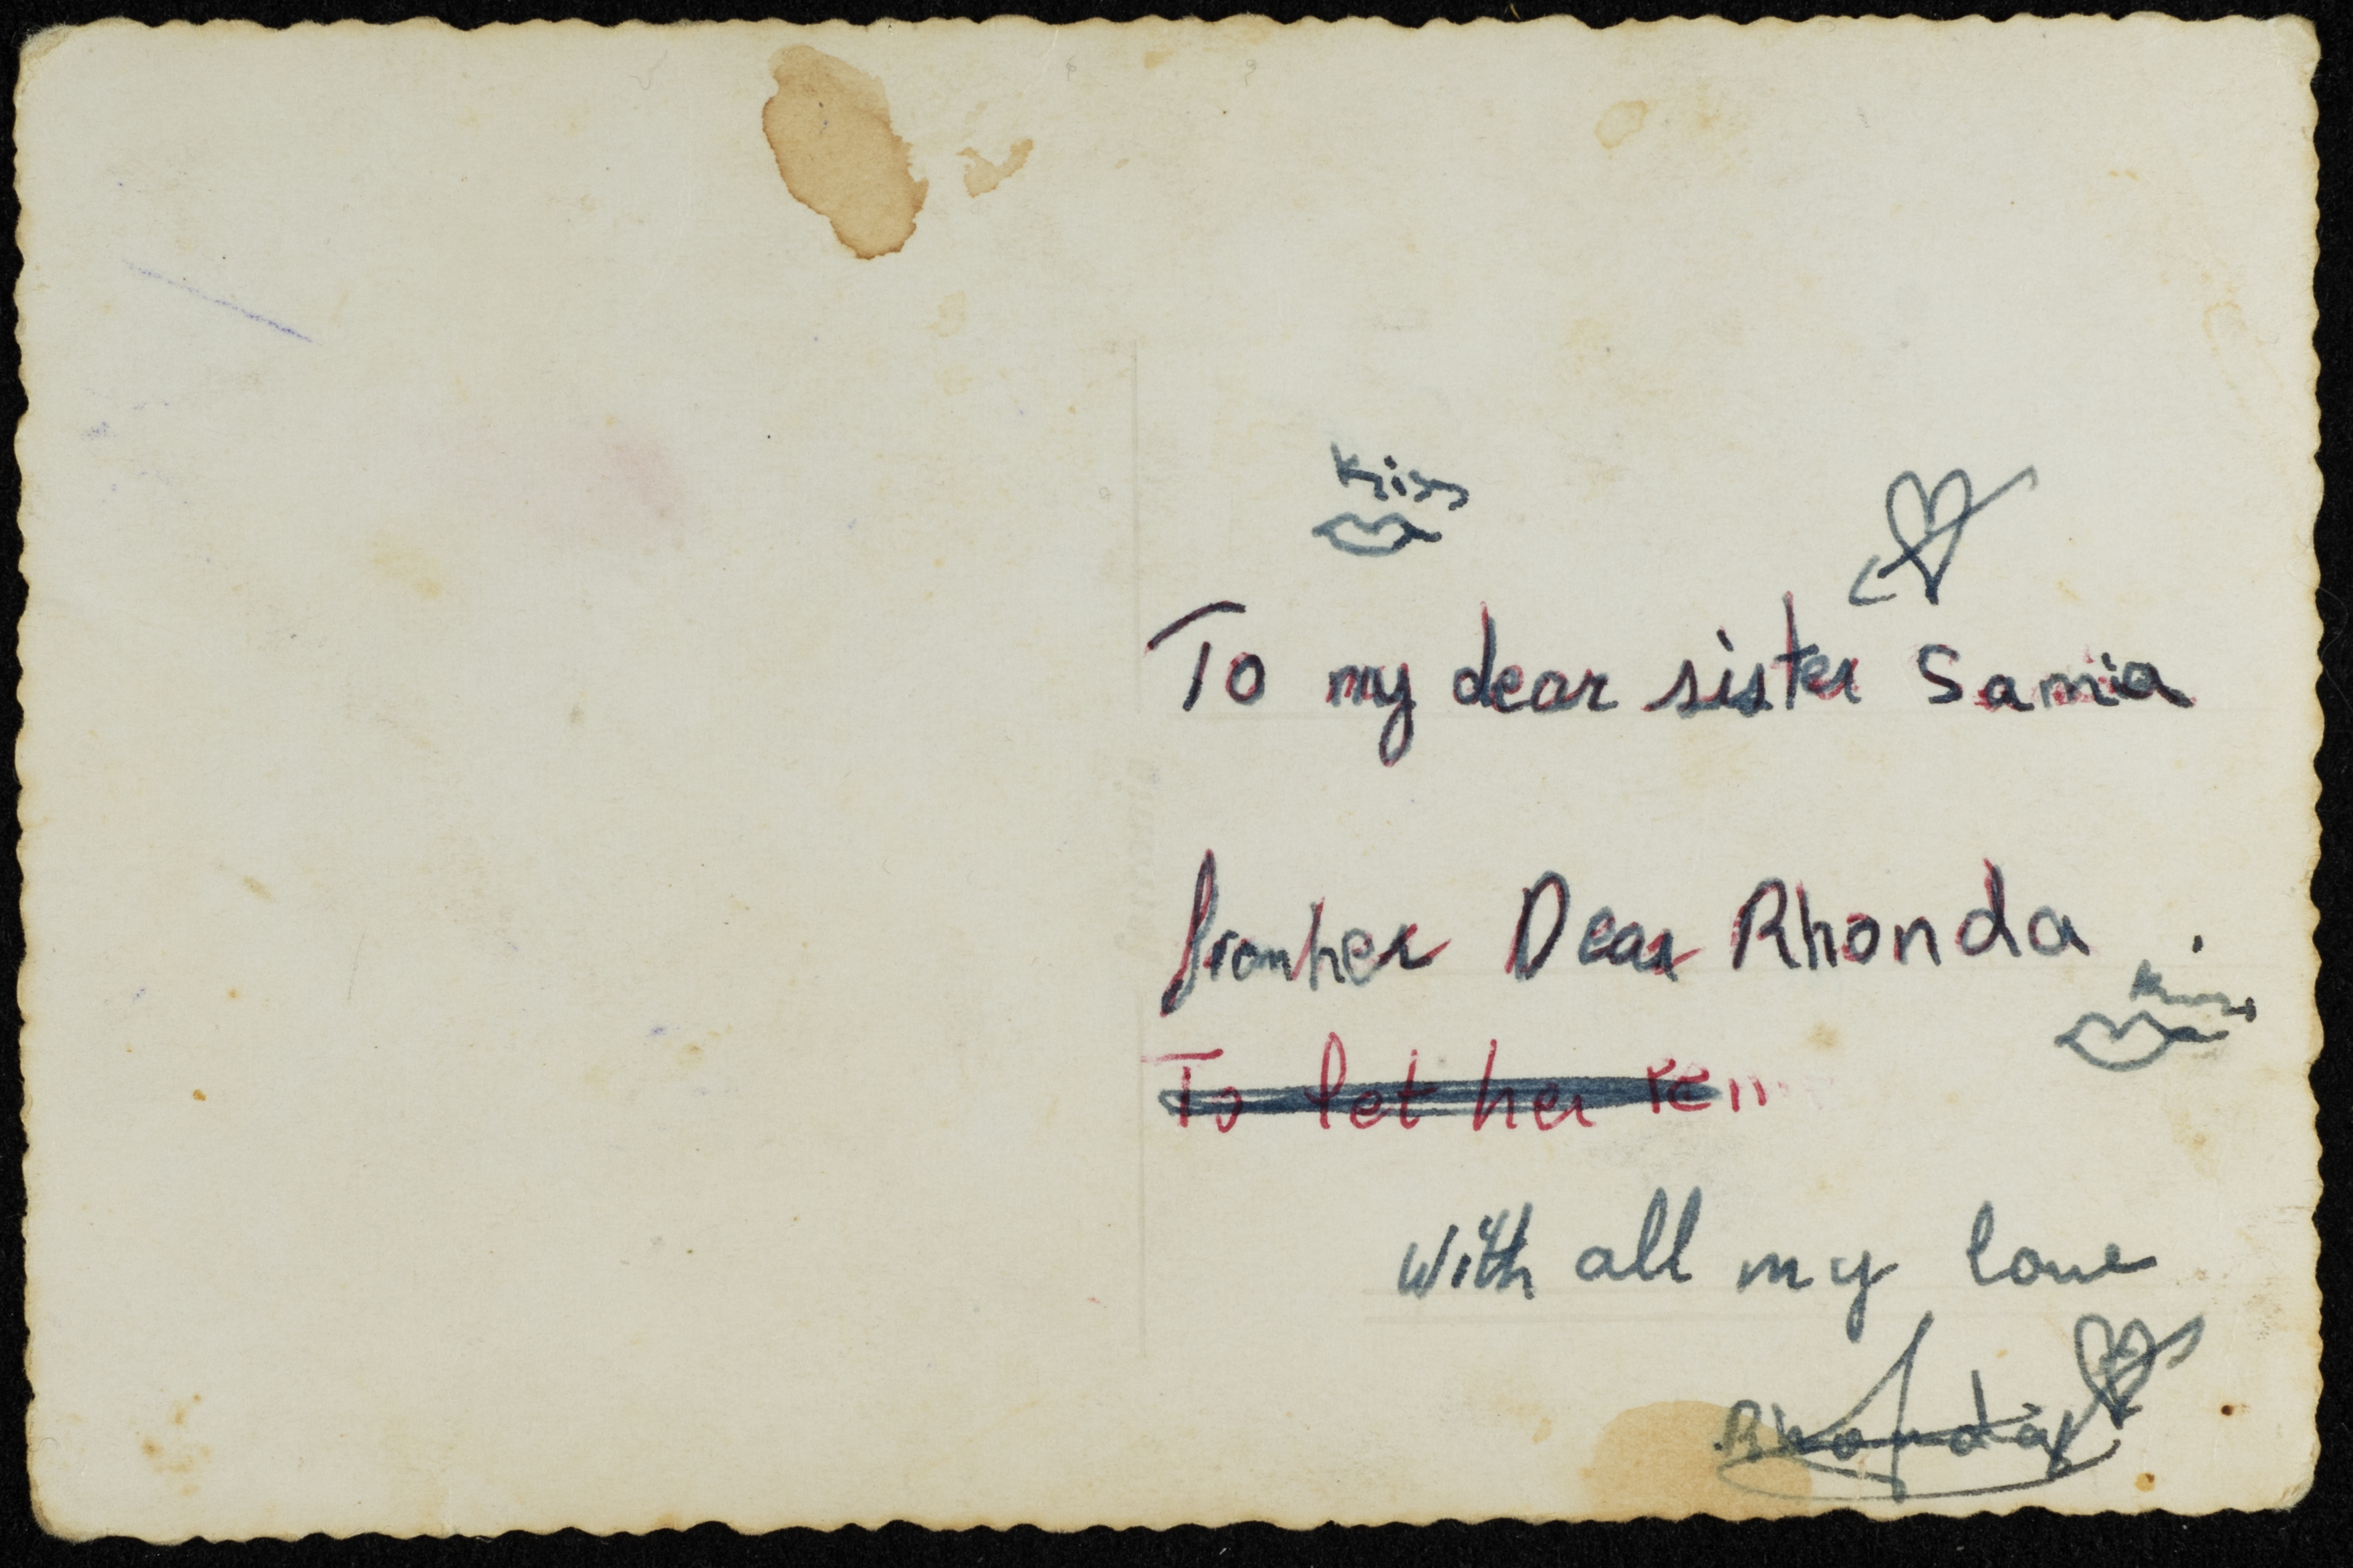 Kiss
To my dear sister Samia
from her Dear Rhonda .
Kiss
To let her
With all my love
Rhonda